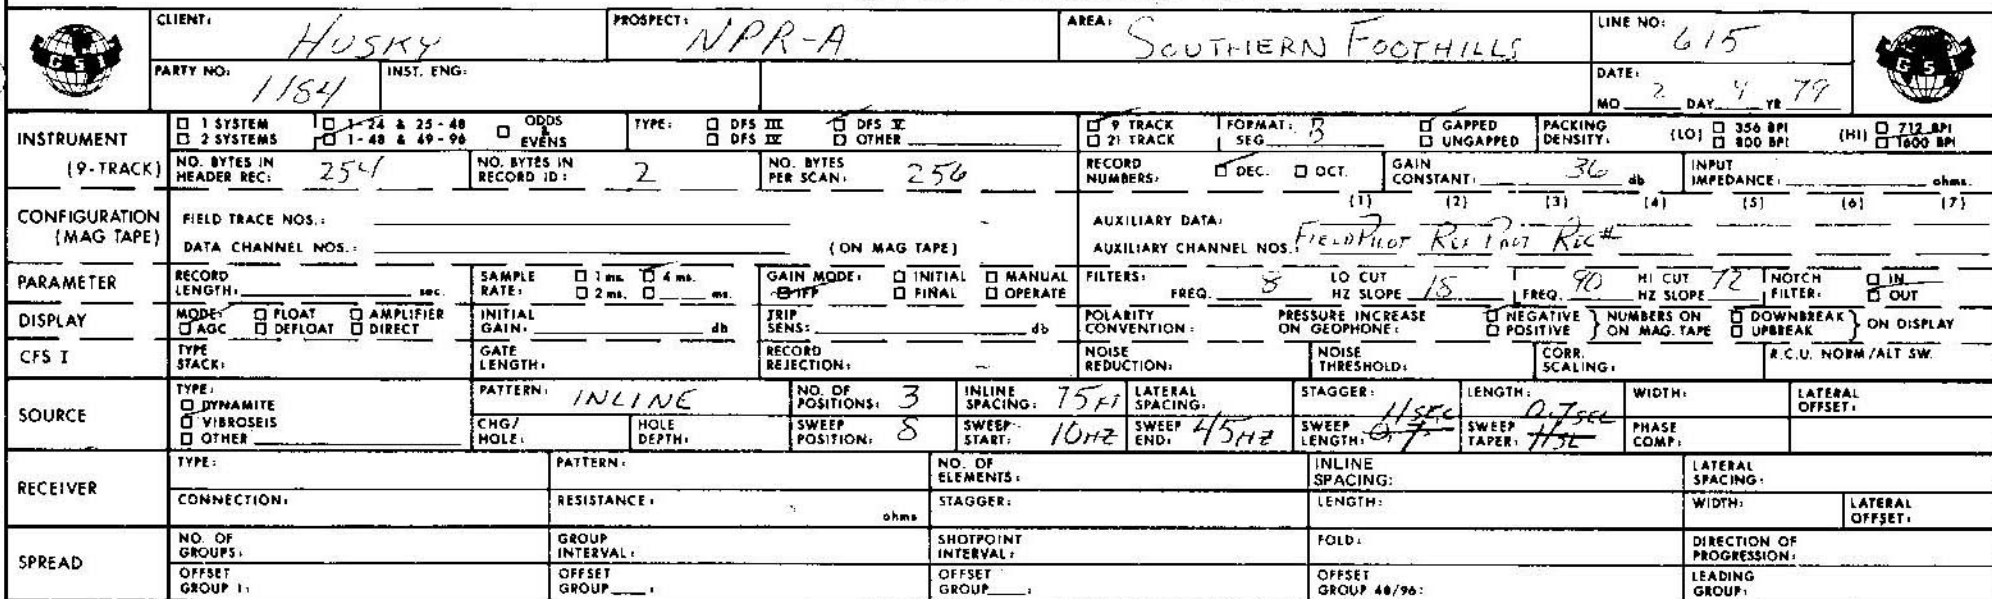 CLIENT: HUSKY PROSPECT: NPR-A AREA: SOUTHERN FOOTHILLS LINE NO: 615
GSI GSI
PARTY NO: 1184 INST. ENG: DATE: MO 2 DAY 4 YR 79
INSTRUMENT (9-TRACK)
□ 1 SYSTEM □ 1-24 & 25-48 □ ODDS & EVENS TYPE: □ DFS III □ DFS V □ 9 TRACK FORMAT: B □ GAPPED PACKING (LO) □ 356 BPI (HI) □ 712 BPI
□ 2 SYSTEMS □ 1-48 & 49-96 □ DFS IV □ OTHER □ 21 TRACK SEG □ UNGAPPED DENSITY: □ 800 BPI □ 1600 BPI
NO. BYTES IN HEADER REC: 254 NO. BYTES IN RECORD ID: 2 NO. BYTES PER SCAN: 256 RECORD NUMBERS: □ DEC. □ OCT. GAIN CONSTANT: 36 db INPUT IMPEDANCE: ohms.
CONFIGURATION (MAG TAPE)
(1) (2) (3) (4) (5) (6) (7)
FIELD TRACE NOS.: AUXILIARY DATA:
DATA CHANNEL NOS.: (ON MAG TAPE) AUXILIARY CHANNEL NOS. FIELD PILOT REC#
PARAMETER RECORD LENGTH: sec. SAMPLE RATE: □ 1 ms. □ 4 ms. □ 2 ms. □ ms. GAIN MODE: □ INITIAL □ MANUAL □ IFP □ FINAL □ OPERATE FILTERS: FREQ. 8 LO CUT HZ SLOPE 18 FREQ. 90 HI CUT HZ SLOPE 72 NOTCH FILTER: □ IN □ OUT
DISPLAY MODE: □ FLOAT □ AMPLIFIER □ AGC □ DEFLOAT □ DIRECT INITIAL GAIN: db TRIP SENS: db POLARITY CONVENTION: PRESSURE INCREASE ON GEOPHONE: □ NEGATIVE □ POSITIVE } NUMBERS ON MAG. TAPE □ DOWNBREAK □ UPBREAK } ON DISPLAY
CFS I TYPE STACK: GATE LENGTH: RECORD REJECTION: NOISE REDUCTION: NOISE THRESHOLD: CORR. SCALING: R.C.U. NORM/ALT SW.
SOURCE TYPE: □ DYNAMITE □ VIBROSEIS □ OTHER
PATTERN: INLINE NO. OF POSITIONS: 3 INLINE SPACING: 75 FT LATERAL SPACING: STAGGER: LENGTH: WIDTH: LATERAL OFFSET:
CHG/HOLE: HOLE DEPTH: SWEEP POSITION: 8 SWEEP START: 10HZ SWEEP END: 45HZ SWEEP LENGTH: 11 SEC SWEEP TAPER: 0.7 SEC PHASE COMP:
RECEIVER TYPE: PATTERN: NO. OF ELEMENTS: INLINE SPACING: LATERAL SPACING:
CONNECTION: RESISTANCE: ohms STAGGER: LENGTH: WIDTH: LATERAL OFFSET:
SPREAD NO. OF GROUPS: GROUP INTERVAL: SHOTPOINT INTERVAL: FOLD: DIRECTION OF PROGRESSION:
OFFSET GROUP 1: OFFSET GROUP : OFFSET GROUP : OFFSET GROUP 48/96: LEADING GROUP: